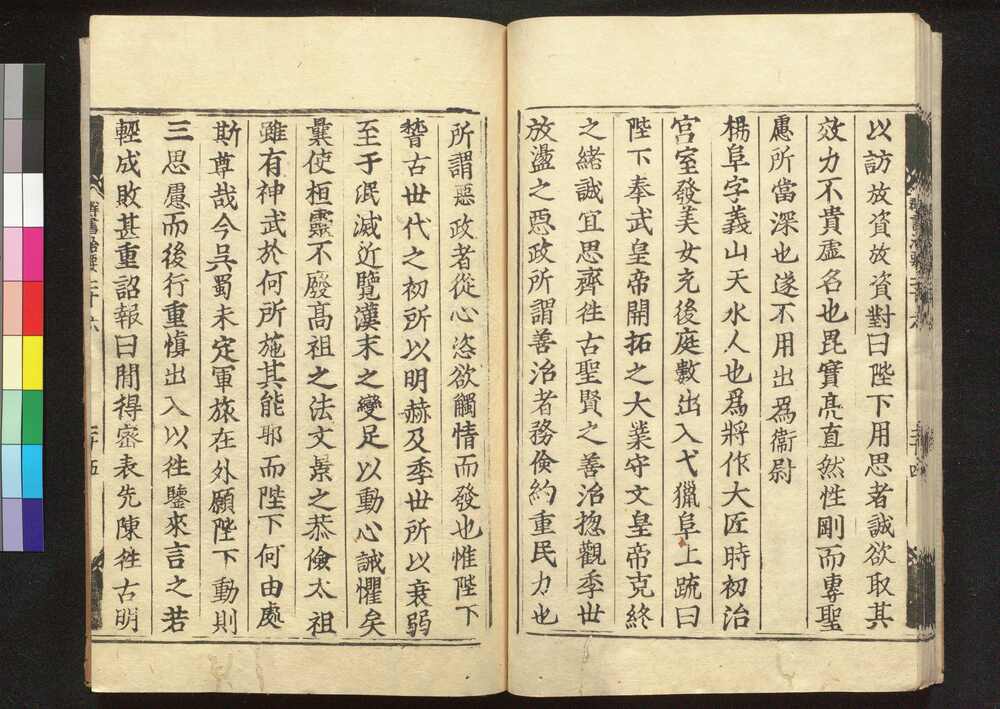 以訪放資放資對曰陛下用思者誠欲取其
效力不貴虛名也毘實亮直然性剛而專聖
慮所當深也遂不用出爲衞尉
楊阜字義山天水人也爲將作大匠時初治
宮室發美女充後庭數出入弋獵阜上疏曰
陛下奉武皇帝開拓之大業守文皇帝克終
之緒誠宜思齊徃古聖賢之善治揔觀季世
放盪之惡政所謂善治者務儉約重民力也
所謂惡政者從心恣欲觸情而發也惟陛下
䅲古世代之初所以明赫及季世所以衰弱
至于泯滅近覽漢末之變足以動心誡懼矣
曩使桓靈不廢高祖之法文景之恭儉太祖
雖有神武於何所施其能耶而陛下何由處
斯尊哉今吳蜀未定軍旅在外願陛下動則
三思慮而後行重愼出入以徃鑒來言之若
輕成敗甚重詔報曰閒得密表先陳徃古明
群書治要二十六
二十五